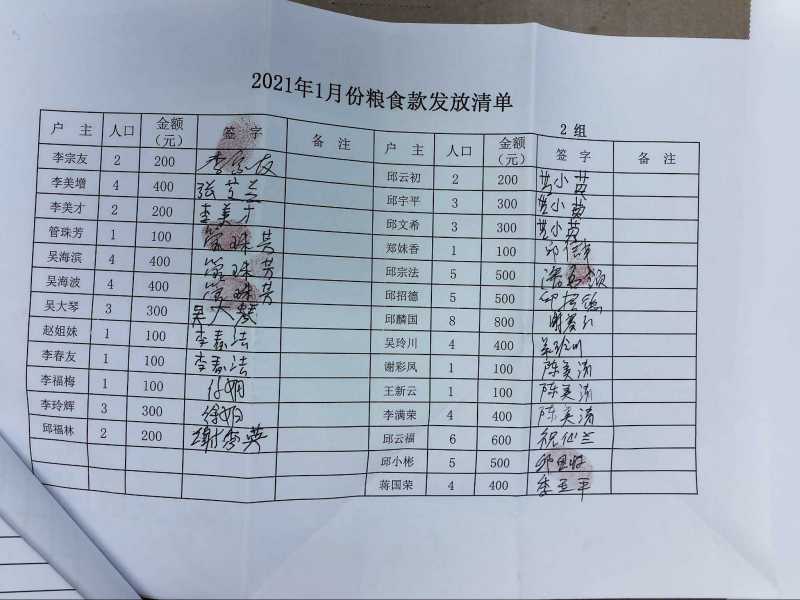 2021年1月份粮食款发放清单
2 组
户 主 人口 金额(元) 签 字 备 注 户 主 人口 金额(元) 签 字 备 注
李宗友 2 200 李宗友 邱云初 2 200
李美增 4 400 张芝兰 邱宇平 3 300
李美才 2 200 李美才 邱文希 3 300
管珠芳 1 100 管珠芳 郑妹香 1 100
吴海滨 4 400 管珠芳 邱宗法 5 500
吴海波 4 400 管珠芳 邱招德 5 500 邱招德
吴大琴 3 300 吴大琴 邱麟国 8 800
赵姐妹 1 100 李春法 吴玲川 4 400 吴玲川
李春友 1 100 李春法 谢彩凤 1 100 陈美清
李福梅 1 100 王新云 1 100 陈美清
李玲辉 3 300 李满荣 4 400 陈美清
邱福林 2 200 谢秀英 邱云福 6 600 祝仙兰
邱小彬 5 500
蒋国荣 4 400 季亚平